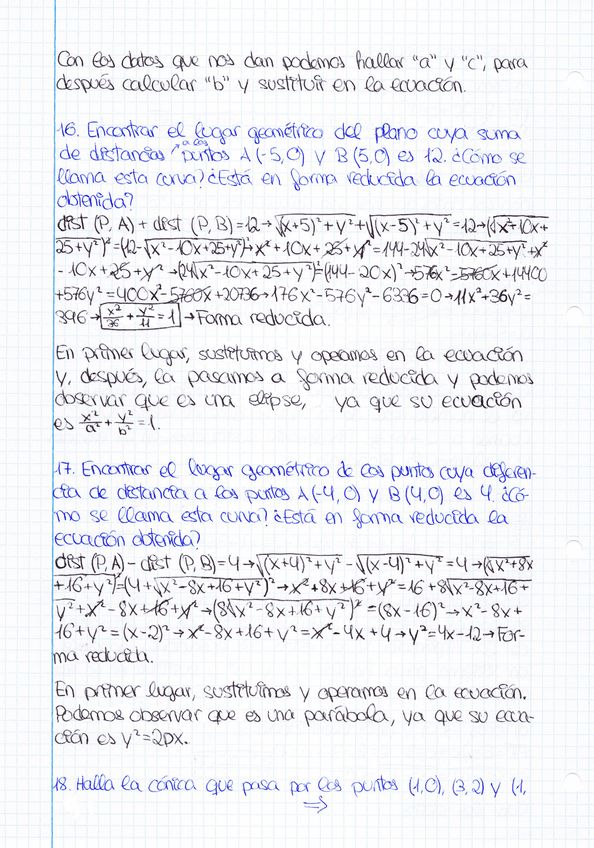 Con los datos que nos dan podemos hallar "a" y "c", para
después calcular "b" y sustituir en la ecuación.
16. Encontrar el lugar geométrico del plano cuya suma
de distancias a los puntos A (-5,0) y B (5,0) es 12. ¿Cómo se
llama esta curva? ¿Está en forma reducida la ecuación
obtenida?
dist (P, A) + dist (P, B) = 12 → √(x+5)² + y² + √(x-5)² + y² = 12 → (√x² + 10x +
25 + y²)² = (12 - √x² - 10x + 25 + y²)² → x² + 10x + 25 + y² = 144 - 24√x² - 10x + 25 + y² + x²
- 10x + 25 + y² → (24√x² - 10x + 25 + y²)² = (144 - 20x)² → 576x² - 5760x + 14400
+ 576y² = 400x² - 5760x + 20736 → 176x² - 576y² - 6336 = 0 → 11x² + 36y² =
396 → x²/36 + y²/11 = 1 → Forma reducida.
En primer lugar, sustituimos y operamos en la ecuación
y, después, la pasamos a forma reducida y podemos
observar que es una elipse, ya que su ecuación
es x²/a² + y²/b² = 1.
17. Encontrar el lugar geométrico de los puntos cuya diferen-
cia de distancia a los puntos A (-4, 0) y B (4, 0) es 4. ¿Có-
mo se llama esta curva? ¿Está en forma reducida la
ecuación obtenida?
dist (P, A) - dist (P, B) = 4 → √(x+4)² + y² - √(x-4)² + y² = 4 → (√x² + 8x
+ 16 + y²)² = (4 + √x² - 8x + 16 + y²)² → x² + 8x + 16 + y² = 16 + 8√x² - 8x + 16 +
y² + x² - 8x + 16 + y² → (8√x² - 8x + 16 + y²)² = (8x - 16)² → x² - 8x +
16 + y² = (x - 2)² → x² - 8x + 16 + y² = x² - 4x + 4 → y² = 4x - 12 → For-
ma reducida.
En primer lugar, sustituimos y operamos en la ecuación.
Podemos observar que es una parábola, ya que su ecua-
ción es y² = 2px.
18. Halla la cónica que pasa por los puntos (1,0), (3, 2) y (1,
⇒